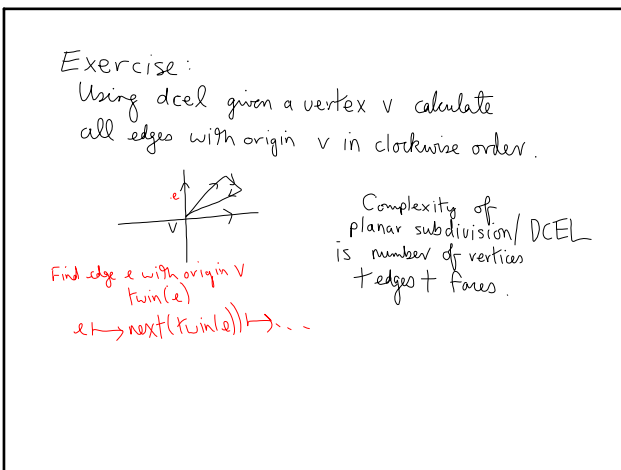 Exercise:
Using dcel given a vertex v calculate
all edges with origin v in clockwise order.
e
V
Find edge e with origin V
twin(e)
e ↦ next(twin(e)) ↦ ...
Complexity of
planar subdivision/ DCEL
is number of vertices
+ edges + faces.